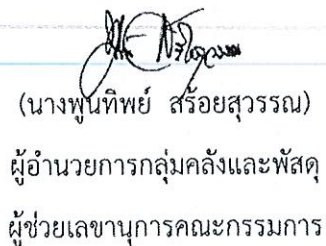 (นางพูนทิพย์ สร้อยสุวรรณ)
ผู้อำนวยการกลุ่มคลังและพัสดุ
ผู้ช่วยเลขานุการคณะกรรมการ